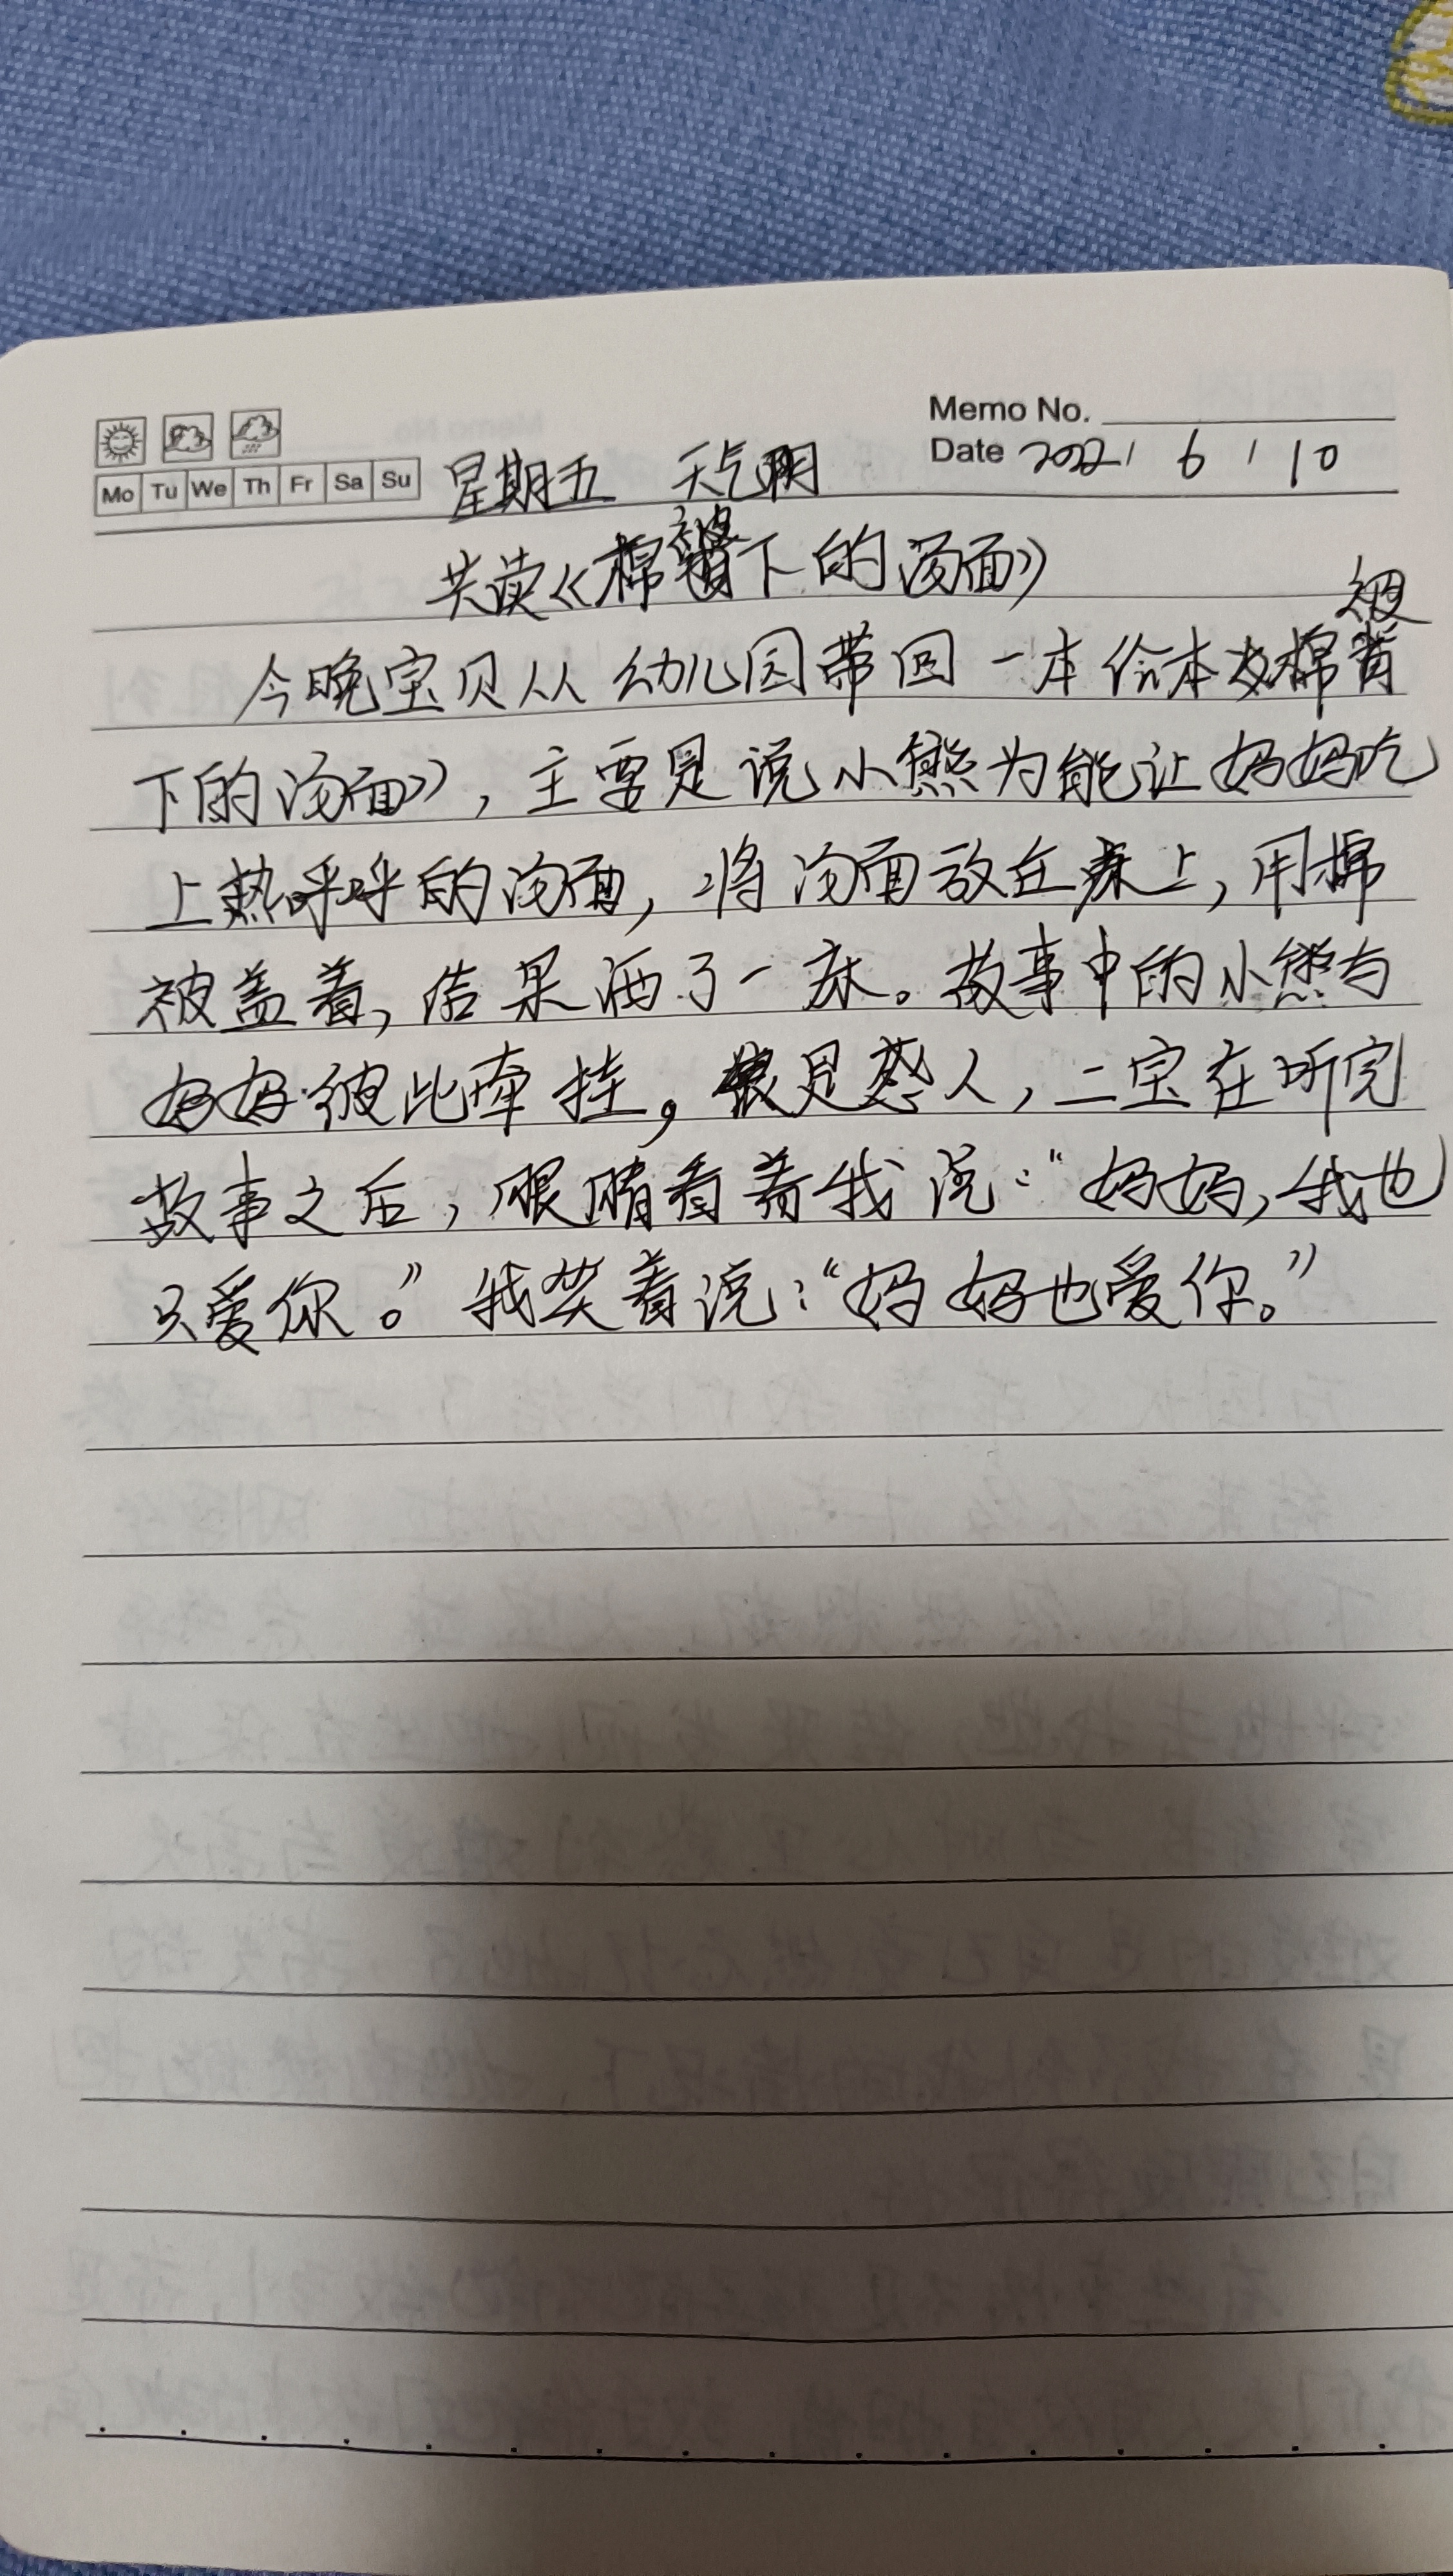 Memo No.
Mo Tu We Th Fr Sa Su 星期五 天气阴 Date 2022 / 6 / 10
共读《棉被下的汤面》
今晚宝贝从幼儿园带回一本绘本《棉被
下的汤面》，主要是说小熊为能让妈妈吃
上热呼呼的汤面，将汤面放在床上，用棉
被盖着，结果洒了一床。故事中的小熊与
妈妈彼此牵挂，很是感人，二宝在听完
故事之后，眼睛看着我说：“妈妈，我也
只爱你。”我笑着说：“妈妈也爱你。”